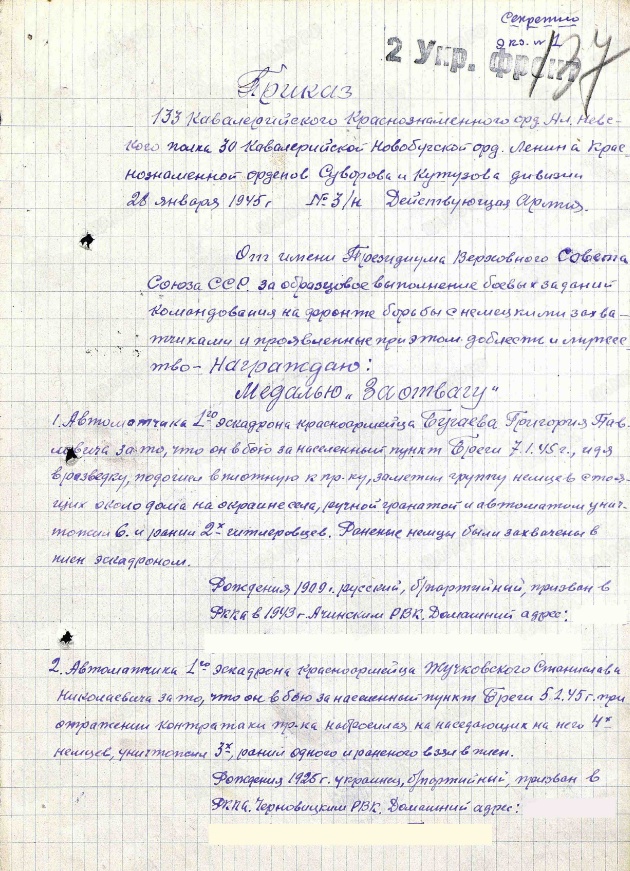 Секретно
экз. №1
2 Укр. фронт
137
Приказ
133 Кавалерийского Краснознаменного орд. Ал. Невс-
кого полка 30 Кавалерийской Новобугской орд. Ленина Крас-
нознаменной орденов Суворова и Кутузова дивизии
28 января 1945г № 3/н Действующая Армия.
От имени Президиума Верховного Совета
Союза ССР. за образцовое выполнение боевых заданий
командования на фронте борьбы с немецкими захва-
тчиками и проявленные при этом доблесть и мужес-
тво - Награждаю:
Медалью „За отвагу"
1. Автоматчика 1го эскадрона красноармейца Бугаева Григория Пав-
ловича за то, что он в бою за населенный пункт Бреги 7.1.45г., идя
в разведку, подошел вплотную к пр-ку, заметил группу немцев стоя-
щих около дома на окраине села, ручной гранатой и автоматом унич-
тожил 6. и ранил 2х гитлеровцев. Раненые немцы были захвачены в
плен эскадроном.
Рождения 1909 г. русский, б/партийный, призван в
РККА в 1943 г. Ачинским РВК. Домашний адрес:
2. Автоматчика 1го эскадрона красноармейца Жучковского Станислава
Николаевича за то, что он в бою за населенный пункт Бреги 5.1.45 г. при
отражении контратаки пр-ка набросился на наседающих на него 4х
немцев, уничтожил 3х, ранил одного и раненого взял в плен.
Рождения 1925 г. украинец, б/партийный, призван в
РККА. Черновицким РВК. Домашний адрес: